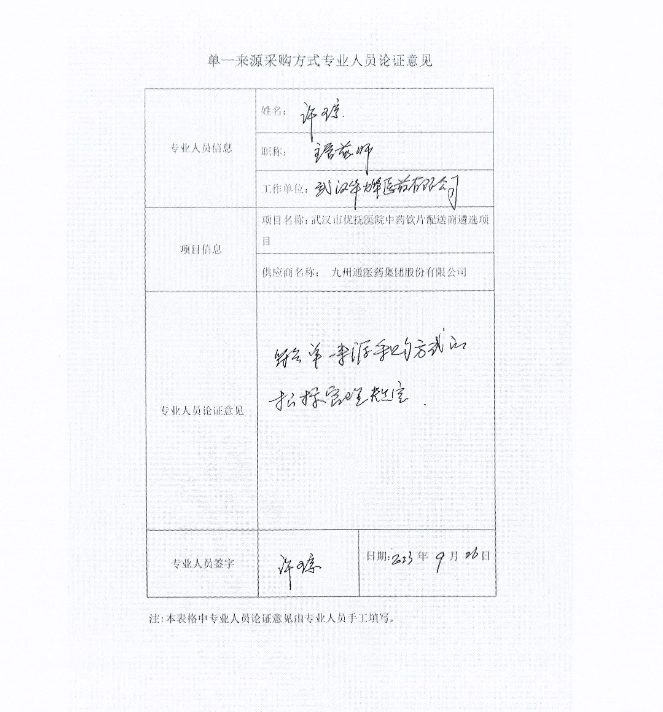 单一来源采购方式专业人员论证意见
专业人员信息
姓名: 许琼
职称: 主管药师
工作单位: 武汉华烽医药有限公司
项目信息
项目名称: 武汉市优抚医院中药饮片配送商遴选项
目
供应商名称: 九州通医药集团股份有限公司
专业人员论证意见
符合单一来源采购方式的
招标管理规定.
专业人员签字
许琼
日期: 2023 年 9 月 26 日
注: 本表格中专业人员论证意见由专业人员手工填写。